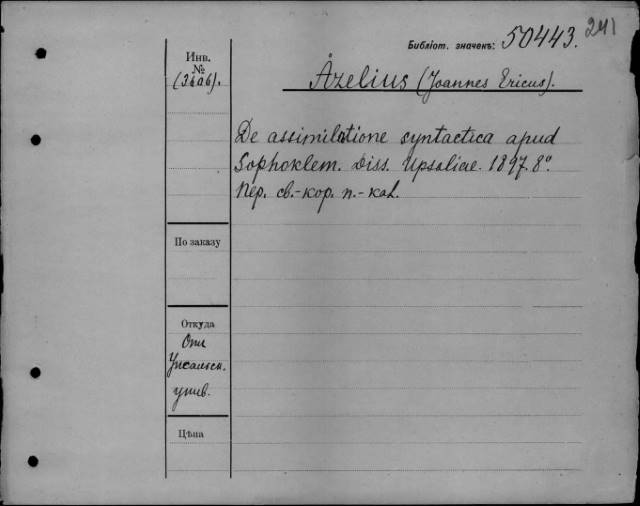 241
Библіот. значекъ: 50443.
Инв.
№
Åzelius (Joannes Ericus).
De assimilatione syntactica apud
Sophoklem. Diss. Upsaliae. 1897. 8°.
Пер. св.-кор. п.-каl.
По заказу
Откуда
Опи
Упсальск.
унив.
Цѣна